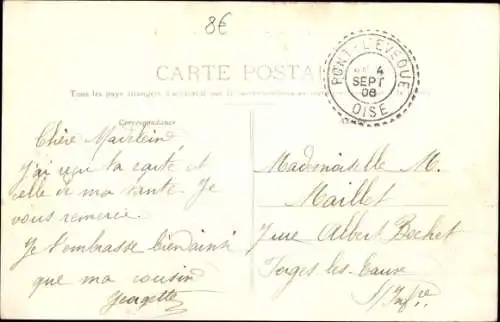 8€
CARTE POSTALE
Tous les pays étrangers
Correspondance
PONT-L'EVEQUE
4
SEPT
08
OISE
Chère Madeleine
J'ai reçu ta carte et
celle de ma tante. Je
vous remercie.
Je t'embrasse bien ainsi
que ma cousine
Georgette
Mademoiselle M.
Maillet
rue Albert Bochet
Forges les Eaux
S/Infre